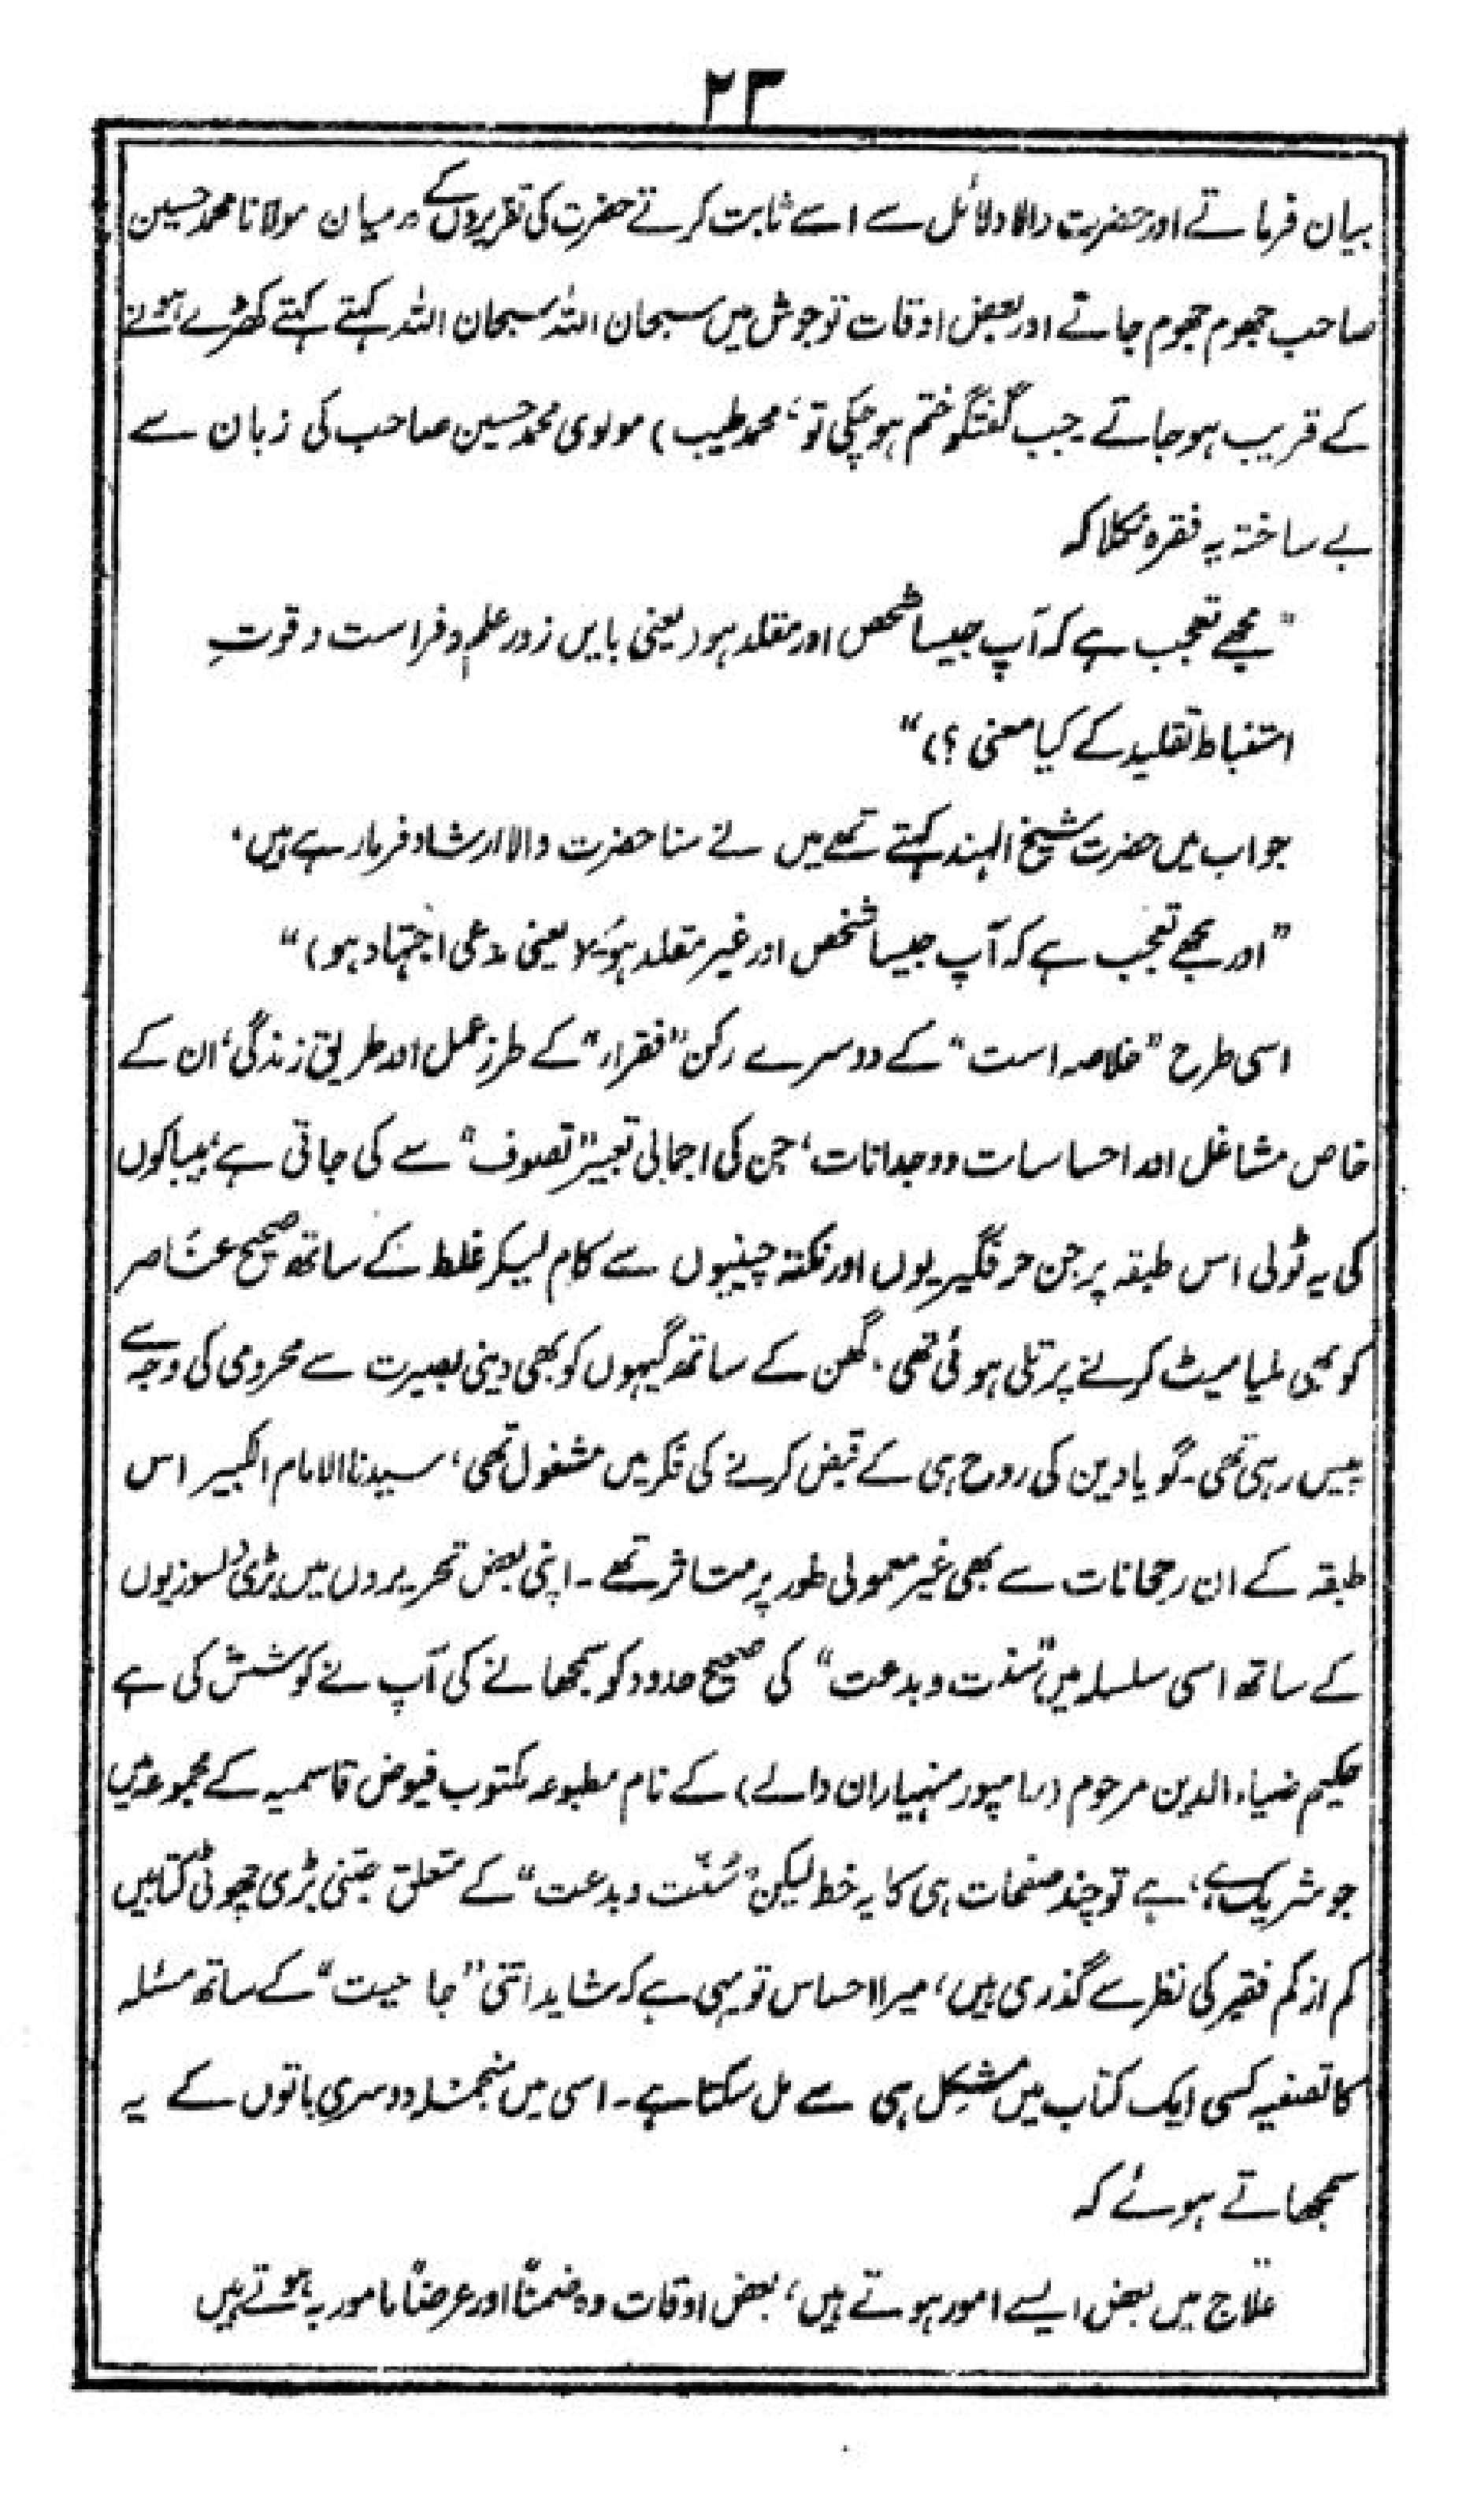 ۲۳
بیان فرماتے اور حضرت والا دلائل سے اسے ثابت کرتے حضرت کی تقریروں کے درمیان مولانا محمد حسین
صاحب جھوم جھوم جاتے اور بعض اوقات تو جوش میں سبحان اللہ سبحان اللہ کہتے کہتے کھڑے ہونے
کے قریب ہو جاتے۔ جب گفتگو ختم ہو چکی تو، محمد طیب) مولوی محمد حسین صاحب کی زبان سے
بے ساختہ یہ فقرہ نکلا کہ
"مجھے تعجب ہے کہ آپ جیسا شخص اور مقلد ہو (یعنی بایں زور علم و فراست و قوتِ
استنباط تقلید کے کیا معنی ؟)"
جواب میں حضرت شیخ الہند کہتے تھے میں نے سنا حضرت والا ارشاد فرما رہے ہیں،
"اور مجھے تعجب ہے کہ آپ جیسا شخص اور غیر مقلد ہو (یعنی مدعی اجتہاد ہو)"
اسی طرح "خلاصہ است" کے دوسرے رکن "فقراء" کے طرز عمل اور طریق زندگی، ان کے
خاص مشاغل اور احساسات و وجدانات، جن کی اجمالی تعبیر "تصوف" سے کی جاتی ہے، بیباکوں
کی یہ ٹولی اس طبقہ پر جن حرفگیریوں اور نکتہ چینیوں سے کام لیکر غلط کے ساتھ صحیح عناصر
کو بھی ملیا میٹ کرنے پر تلی ہوئی تھی، گھن کے ساتھ گیہوں کو بھی دینی بصیرت سے محرومی کی وجہ سے
پیس رہی تھی۔ گویا دین کی روح ہی کے قبض کرنے کی فکر میں مشغول تھی، سیدنا الامام الکبیر اس
طبقہ کے ان رجحانات سے بھی غیر معمولی طور پر متاثر تھے۔ اپنی بعض تحریروں میں بڑی دلسوزیوں
کے ساتھ اسی سلسلہ میں "سنت و بدعت" کی صحیح حدود کو سمجھانے کی آپ نے کوشش کی ہے
حکیم ضیاء الدین مرحوم (رامپور منہیاران والے) کے نام مطبوعہ مکتوب فیوض قاسمیہ کے مجموعہ میں
جو شریک ہے، ہے تو چند صفحات ہی کا یہ خط لیکن "سُنّت و بدعت" کے متعلق جتنی بڑی چھوٹی کتابیں
کم از کم فقیر کی نظر سے گذری ہیں، میرا احساس تو یہی ہے کہ شاید اتنی "جامعیت" کے ساتھ مسئلہ
کا تصفیہ کسی ایک کتاب میں مشکل ہی سے مل سکتا ہے۔ اسی میں منجملہ دوسری باتوں کے یہ
سمجھاتے ہوئے کہ
علاج میں بعض ایسے امور ہوتے ہیں، بعض اوقات وہ ضمناً اور عرضاً مامور بہ ہوتے ہیں